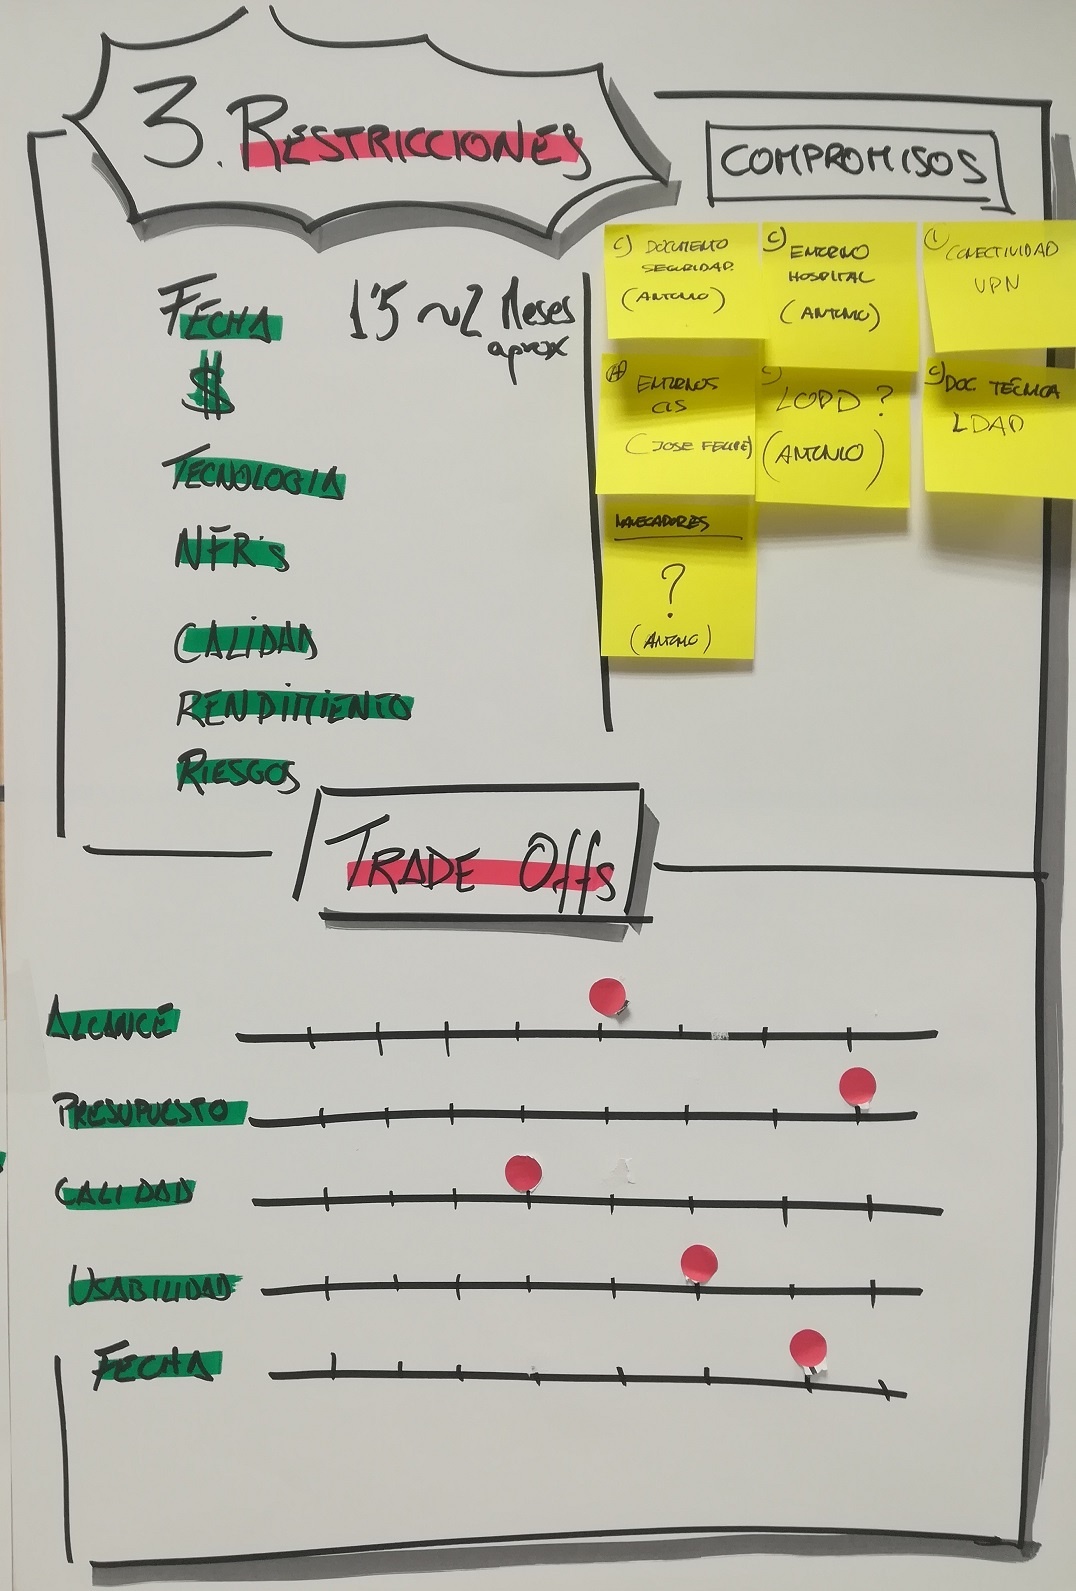 3. RESTRICCIONES
COMPROMISOS
FECHA
1'5 ~ 2 Meses
aprox
$
TECNOLOGIA
NFR's
CALIDAD
RENDIMIENTO
RIESGOS
C) DOCUMENTO
SEGURIDAD.
(ANTONIO)
C) ENTORNO
HOSPITAL
(ANTONIO)
CONECTIVIDAD
VPN
ENTORNOS
CIS
(JOSE FELIPE)
LOPD ?
(ANTONIO)
C) DOC. TÉCNICA
LDAP
NAVEGADORES
?
(ANTONIO)
TRADE Offs
ALCANCE
PRESUPUESTO
CALIDAD
USABILIDAD
FECHA